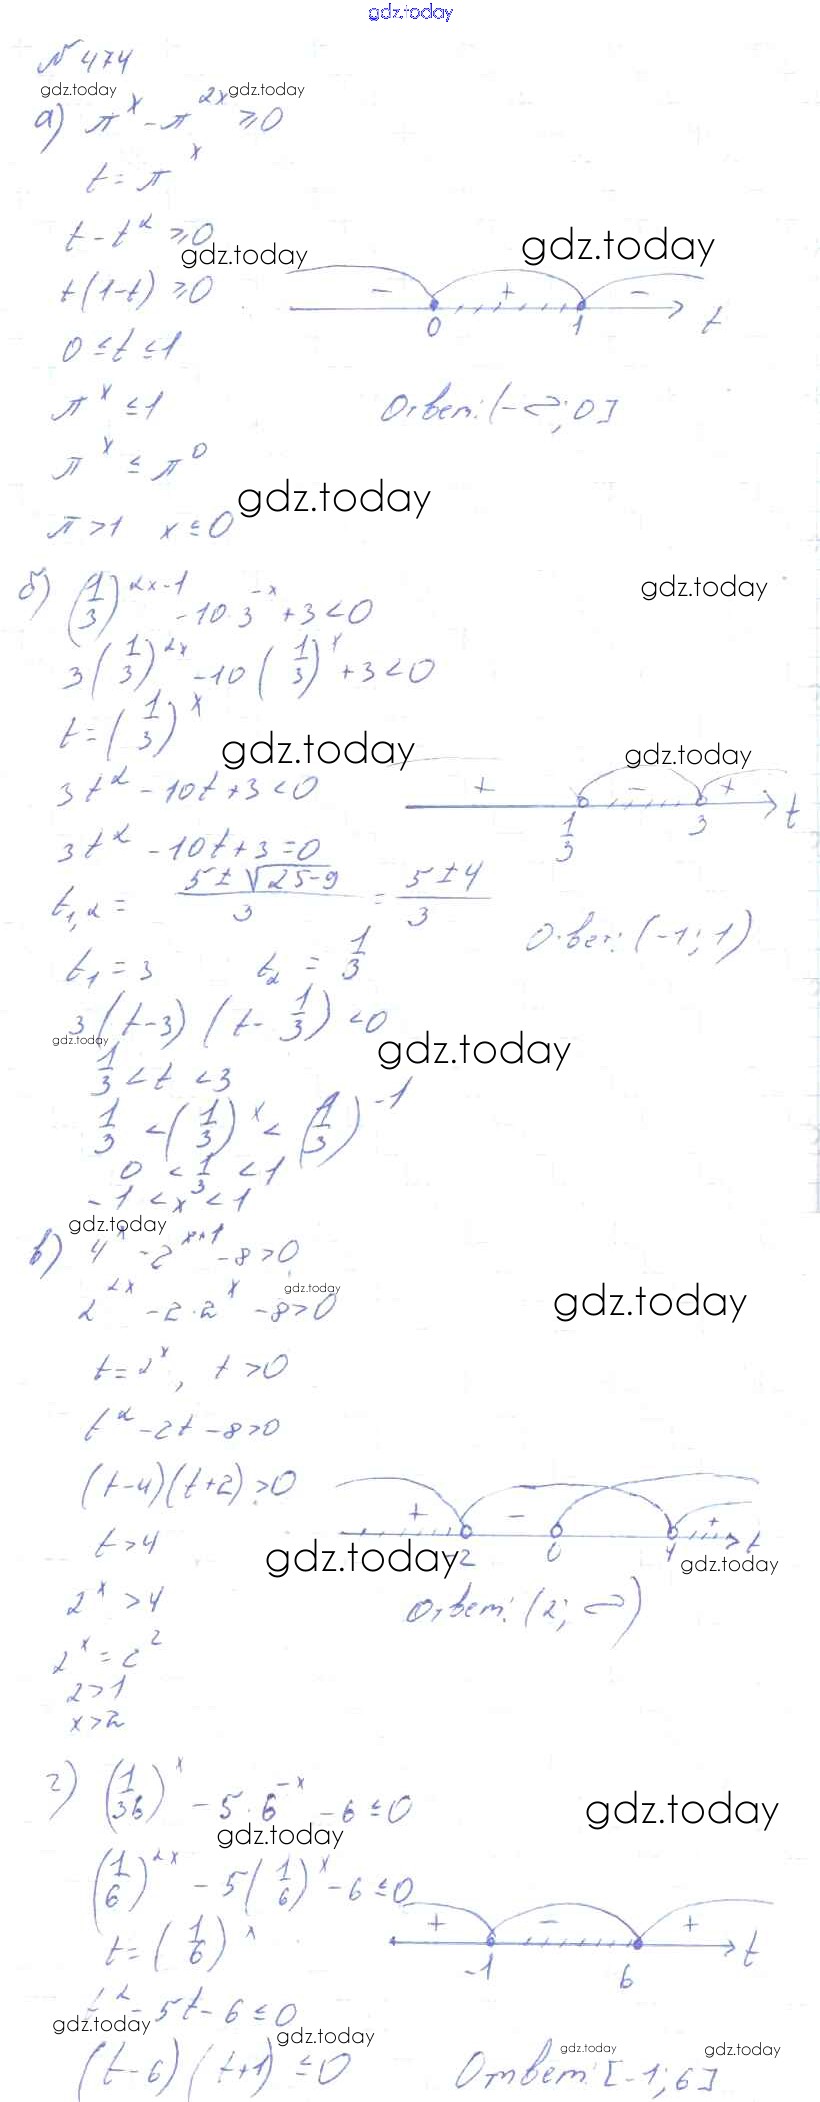 gdz.today
№ 474
gdz.today gdz.today
а) π^x - π^2x ≥ 0
t = π^x
t - t² ≥ 0
gdz.today gdz.today
t(1-t) ≥ 0
- + -
0 1 t
0 ≤ t ≤ 1
π^x ≤ 1
Ответ: (-∞; 0]
π^x ≤ π^0
gdz.today
π > 1 x ≤ 0
б) (1/3)^2x-1 - 10·3^-x + 3 < 0
gdz.today
3(1/3)^2x - 10(1/3)^x + 3 < 0
t = (1/3)^x
gdz.today gdz.today
3t² - 10t + 3 < 0
+ - +
1/3 3 t
3t² - 10t + 3 = 0
t1,2 = (5 ± √25-9)/3 = (5 ± 4)/3
Ответ: (-1; 1)
t1 = 3 t2 = 1/3
3(t-3)(t-1/3) < 0
gdz.today gdz.today
1/3 < t < 3
1/3 < (1/3)^x < (1/3)^-1
0 < 1/3 < 1
-1 < x < 1
gdz.today
в) 4^x - 2^x+1 - 8 > 0
gdz.today gdz.today
2^2x - 2·2^x - 8 > 0
t = 2^x, t > 0
t² - 2t - 8 > 0
(t-4)(t+2) > 0
+ - +
-2 0 4 t
t > 4
gdz.today gdz.today
2^x > 4
Ответ: (2; ∞)
2^x = 2^2
2 > 1
x > 2
г) (1/36)^x - 5·6^-x - 6 ≤ 0
gdz.today gdz.today
(1/6)^2x - 5(1/6)^x - 6 ≤ 0
t = (1/6)^x
+ - +
-1 6 t
t² - 5t - 6 ≤ 0
gdz.today gdz.today
(t-6)(t+1) ≤ 0
gdz.today gdz.today
Ответ: [-1; 6]